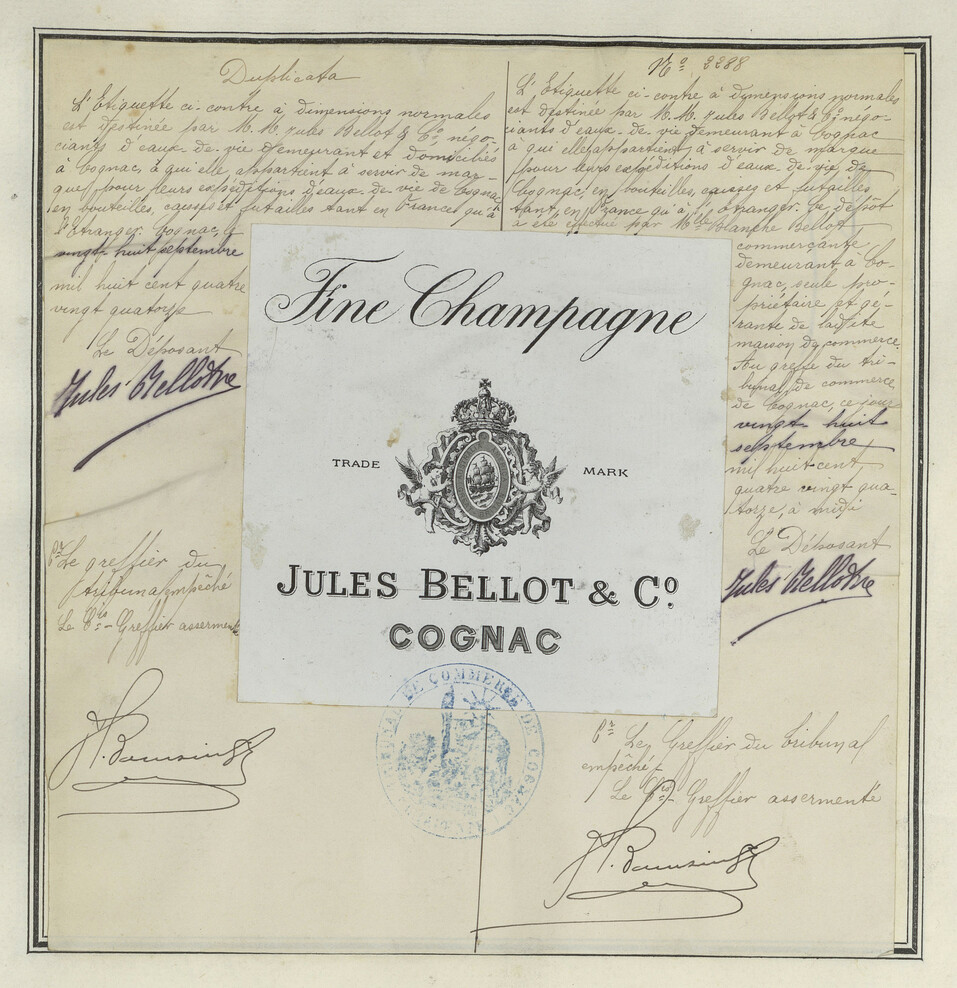 Duplicata
L'Etiquette ci-contre à dimensions normales
est destinée par M.M. Jules Bellot & Cº, négo-
ciants d'eaux-de-vie demeurant et domiciliés
à Cognac, à qui elle appartient à servir de mar-
que pour leurs expéditions d'eaux-de-vie de Cognac
en bouteilles, caisses et futailles tant en France qu'à
l'Etranger. Cognac, le
vingt huit septembre
mil huit cent quatre
vingt quatorze
Le Déposant
Jules Bellot & Cie
Pr Le greffier du
tribunal empêché
Le Cis-Greffier assermenté
Nº 2288
L'Etiquette ci-contre à dymensions normales
est destinée par M.M. Jules Bellot & Cº négo-
ciants d'eaux-de-vie demeurant à Cognac
à qui elle appartient, à servir de marque
pour leurs expéditions d'eaux-de-vie de
Cognac, en bouteilles, caisses et futailles
tant en France qu'à l'étranger. Le dépôt
a été effectué par Melle Blanche Bellot
commerçante,
demeurant à Co-
gnac, seule pro-
priétaire et gé-
rante de ladite
maison de commerce.
Au greffe du tri-
bunal de commerce
de Cognac, ce jour
vingt huit
septembre
mil huit cent,
quatre vingt qua-
torze, à midi
Le Déposant
Jules Bellot & Cie
Pr Le Greffier du tribunal
empêché
Le Cis-Greffier assermenté
Fine Champagne
TRADE MARK
JULES BELLOT & Cº.
COGNAC
TRIBUNAL DE COMMERCE DE COGNAC